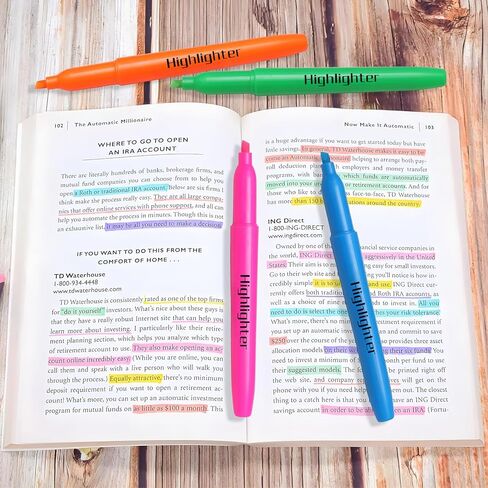 Highlighter
Highlighter
102 | The Automatic Millionaire
WHERE TO GO TO OPEN
AN IRA ACCOUNT
There are literally hundreds of banks, brokerage firms, and
mutual fund companies you can choose from to help you
open a Roth or traditional IRA account. Below are six firms I
think make the process really easy. They are all large compa-
nies that offer online services with phone support, and all can
help you automate the process in minutes. Though this is not
an exhaustive list, it may be all you need to make a decision.
IF YOU WANT TO DO THIS FROM THE
COMFORT OF HOME . . .
TD Waterhouse
1-800-934-4448
www.tdwaterhouse.com
TD Waterhouse is consistently rated as one of the top firms
for "do it yourself" investors. What's nice about these guys is
that they have a really robust Internet site that can help you
learn more about investing. I particularly like their retire-
ment planning section, which helps you analyze which type
of retirement account to use. They also make opening an ac-
count online incredibly easy. While you are online, you can
call them and speak with a live person who will walk you
through the process. Equally attractive, there's no minimum
deposit requirement if you want to open a retirement ac-
count! What's more, you can set up an automatic investment
program for mutual funds on as little as $100 a month. This
Highlighter
Now Make It Automatic | 103
is a huge advantage if you want to get started today but have
little savings. In general, TD Waterhouse makes it easy to be-
come an Automatic Millionaire
helping to arrange both pay-
roll deduction
employers and money transfer
programs, with
which funds are automatically
moved into your
or retirement accounts. And for
those who like to do
has more than 150
around the country.
ING Direct
1-800-ING-DIRECT
www.ingdirect.com
Owned by one of the
financial service companies in
the world, ING
aggressively in the United
States. Their aim is to make
easy for small investors.
Go to their website and
is how in-
credibly simple it is to
and use. ING Direct cur-
rently offers both
and Roth IRA accounts, as
well as a choice of nine
funds to invest in. All you
need to do is select the one
your risk tolerance.
What's more, there's no
investment requirement if
you set up an automatic
and commit to save
$250 over the course of
provides three asset allocation
models
on their
six funds! You
need to invest a minimum of
form can be
printed right off
the web site, and company
will get on the
phone with you if you need help
The closest
thing to a catch here is that you
have an ING Direct
savings account in order to be able
an IRA! (Fortu-
Highlighter